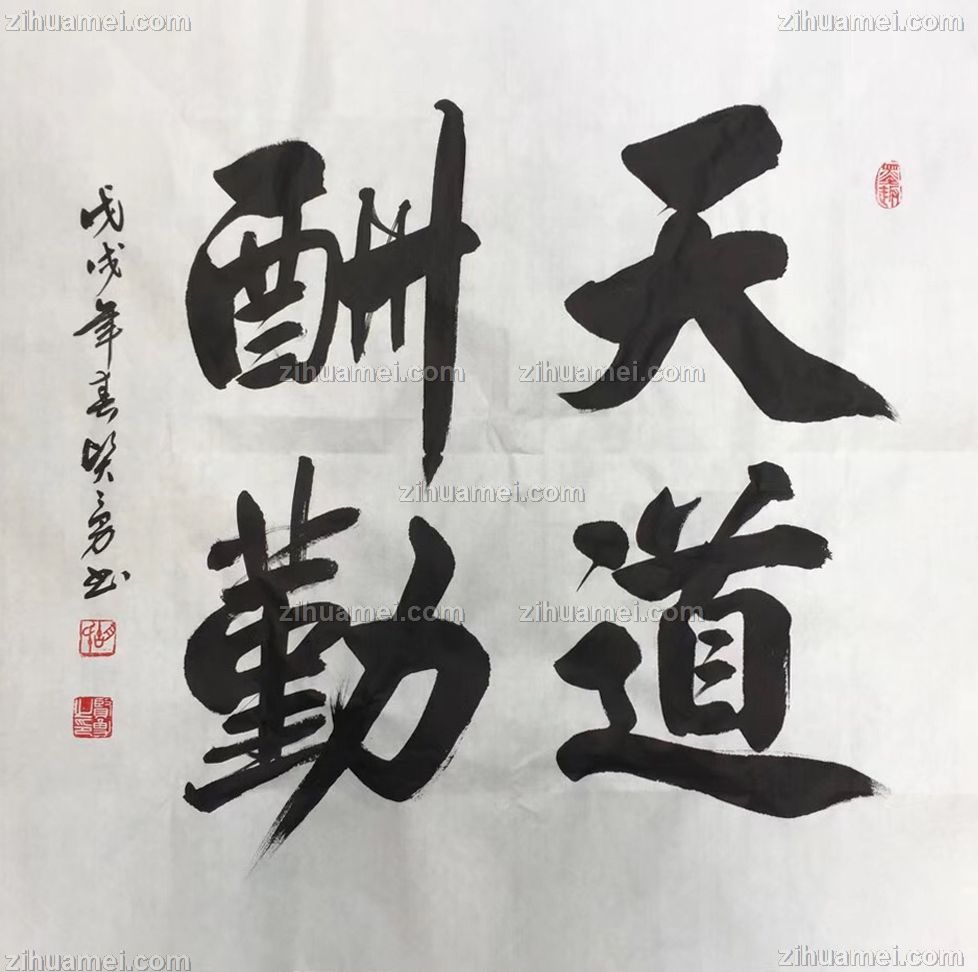 天道
酬勤
戊戌年春贤勇书
賢勇之印
zihuamei.com
zihuamei.com
zihuamei.com
zihuamei.com
zihuamei.com
zihuamei.com
zihuamei.com
zihuamei.com
zihuamei.com
zihuamei.com